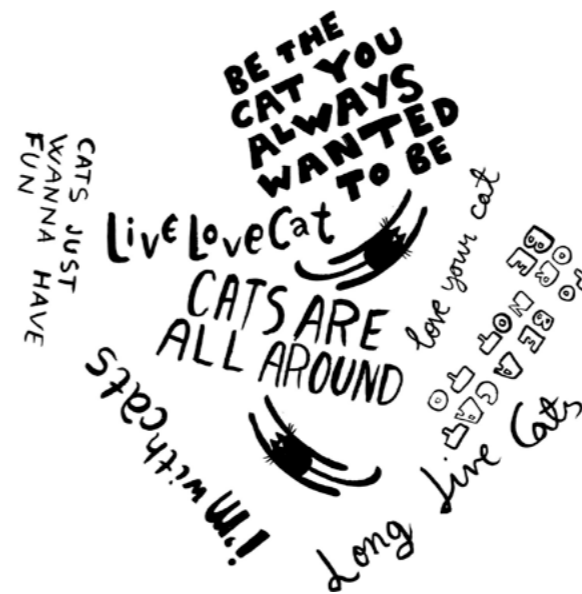 BE THE
CAT YOU
ALWAYS
WANTED
TO BE
CATS JUST
WANNA HAVE
FUN
Live Love Cat
love your cat
CATS ARE
ALL AROUND
TO BE A CAT
OR NOT TO
BE
i'm with cats
Long Live Cats